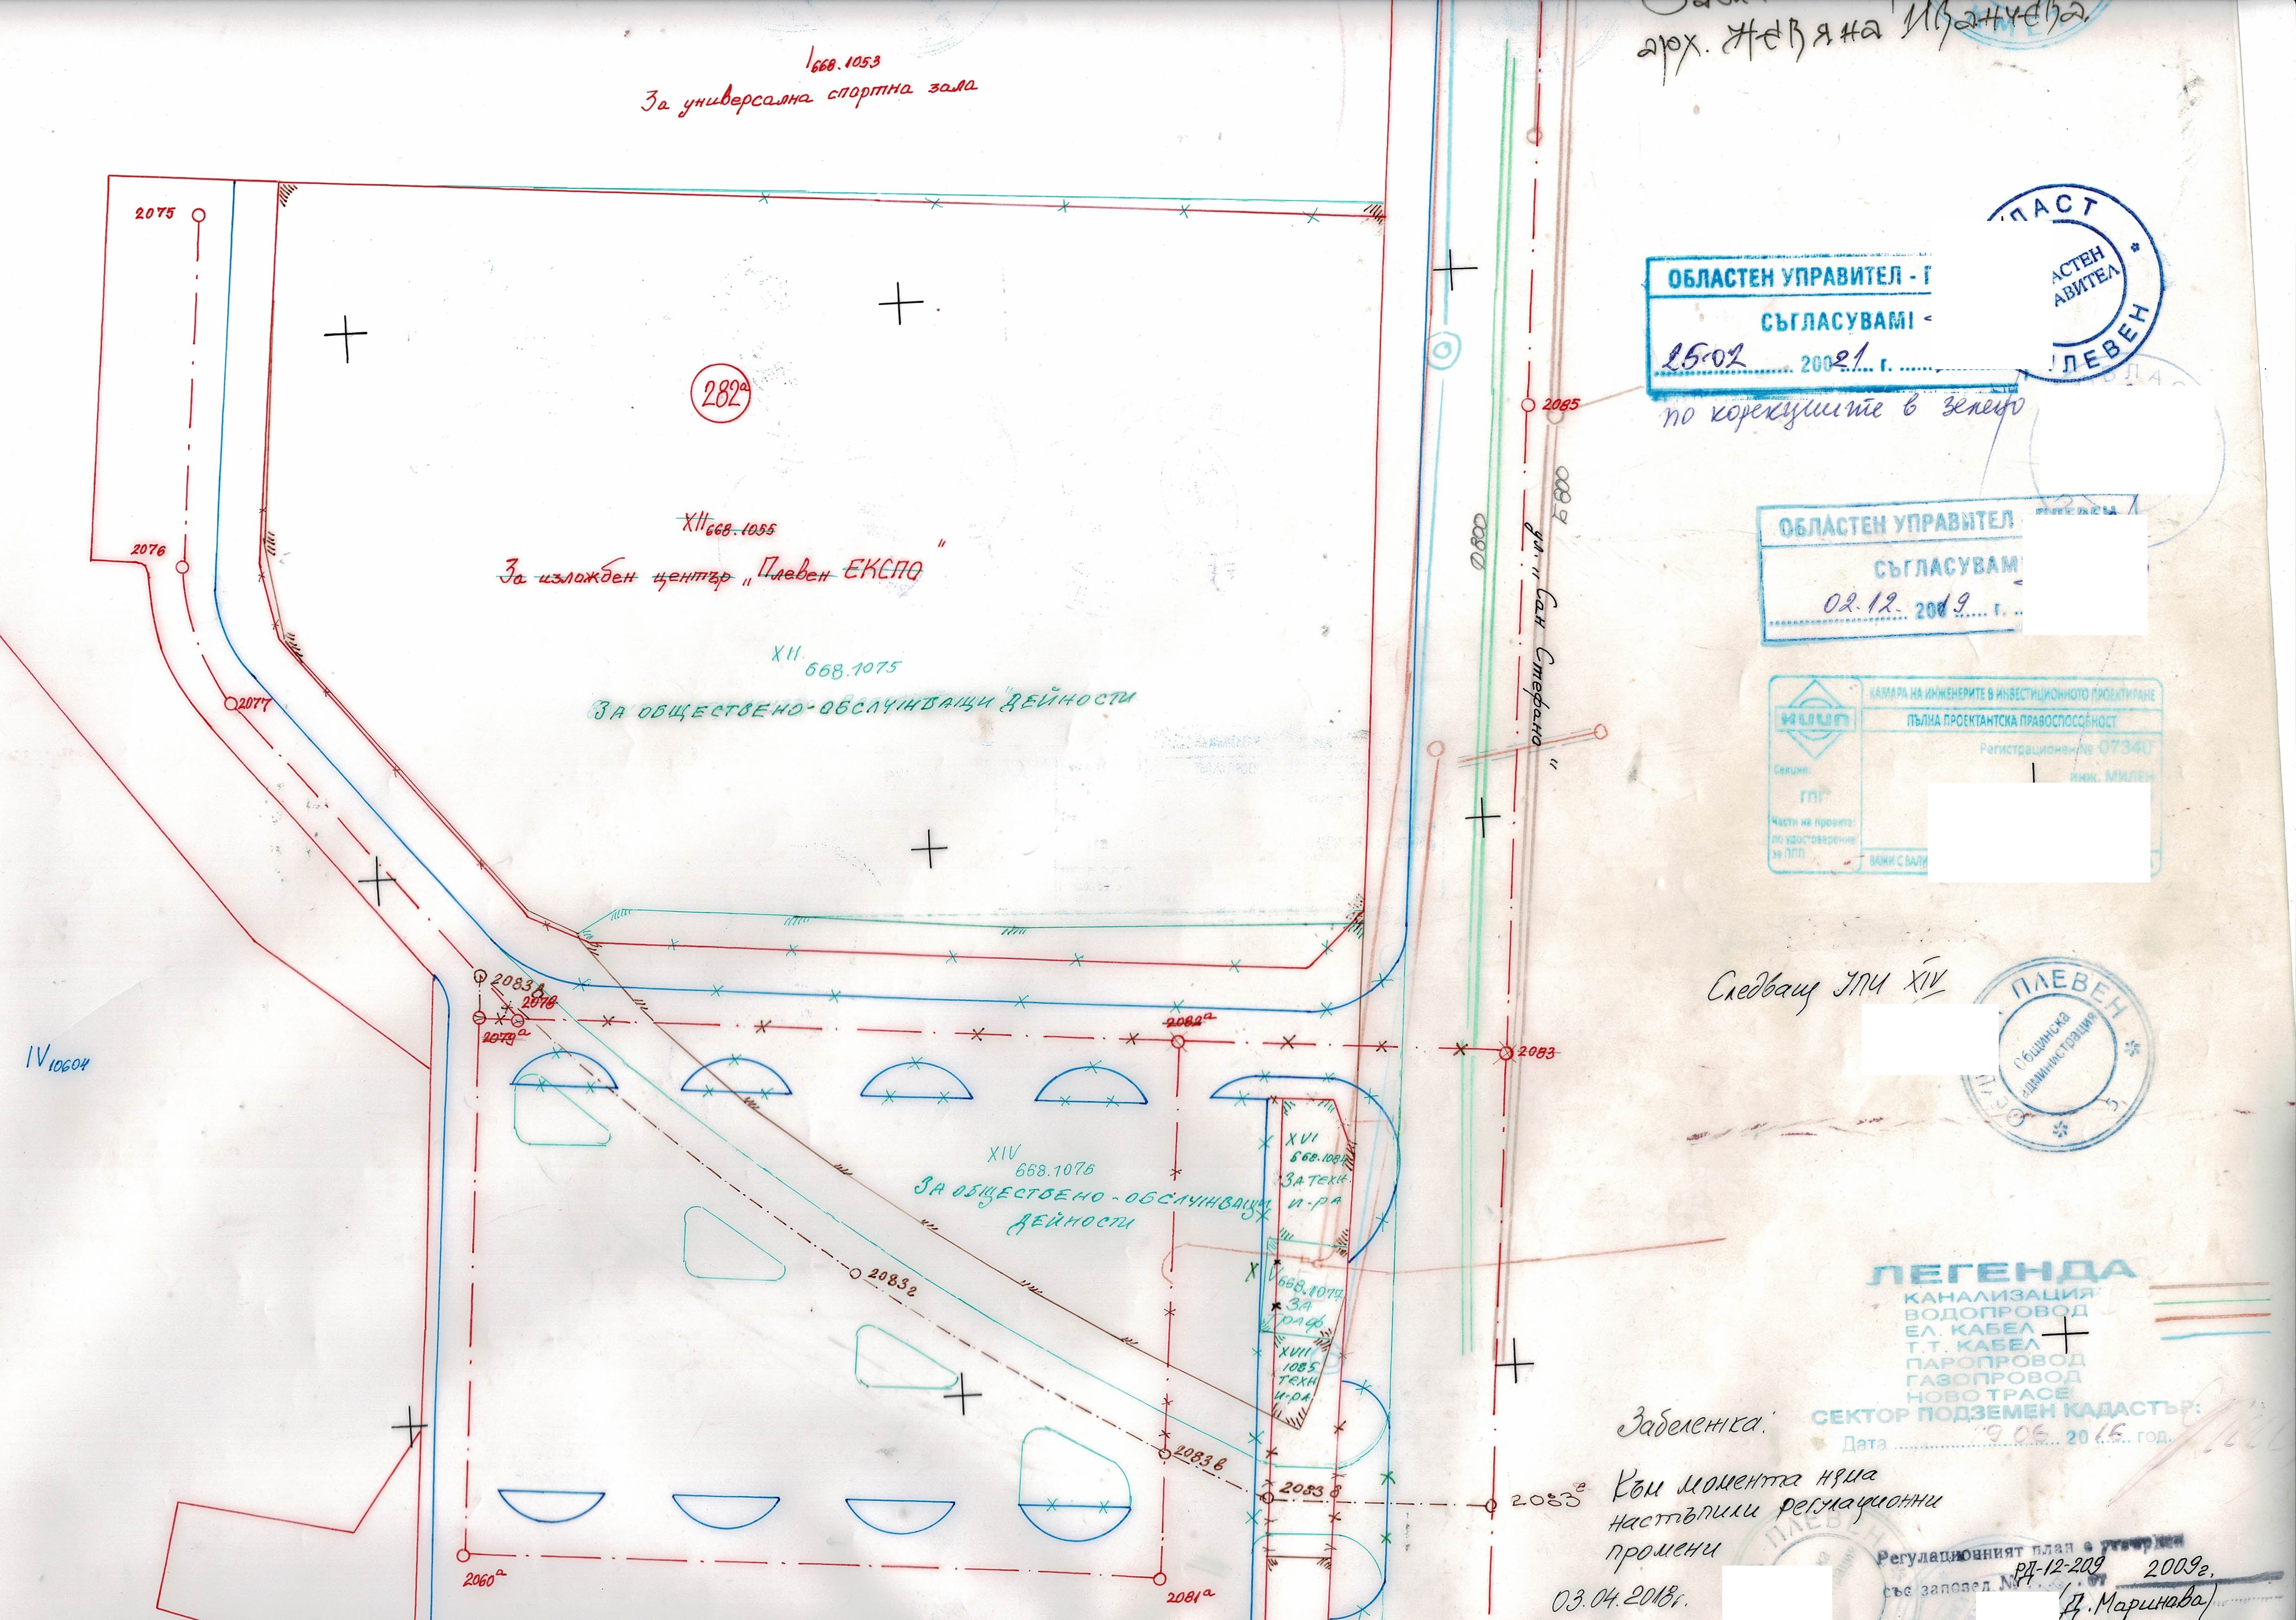 арх. Невяна Иванчева.
I 668.1053
За универсална спортна зала
2075
282а
2076
XII 668.1055
За изложбен център „Плевен ЕКСПО"
XII
668.1075
ЗА ОБЩЕСТВЕНО-ОБСЛУЖВАЩИ ДЕЙНОСТИ
2077
2085
ул. „Сан Стефано"
2083
2078
2079а
2082а
2083
IV 10604
XIV
668.1076
ЗА ОБЩЕСТВЕНО-ОБСЛУЖВАЩИ
ДЕЙНОСТИ
XVI
ЗА ТЕХН.
И-РА
668.1077
ЗА
XVII
1085
ТЕХН
И-РА
2083г
2083в
2083
2083
2060а
2081а
ОБЛАСТЕН УПРАВИТЕЛ -
СЪГЛАСУВАМ
25.02 20021 г.
по корекциите в зелено
ПЛЕВЕН
ОБЛАСТЕН УПРАВИТЕЛ - ПЛЕВЕН
СЪГЛАСУВАМ
02.12. 20019 г.
КАМАРА НА ИНЖЕНЕРИТЕ В ИНВЕСТИЦИОННОТО ПРОЕКТИРАНЕ
КИИП
ПЪЛНА ПРОЕКТАНТСКА ПРАВОСПОСОБНОСТ
Регистрационен № 07340
инж. МИЛЕН
Секция:
ГПГ
Части на проекта:
по удостоверение
за ППП
Следващ УПИ XIV
ПЛЕВЕН
Общинска
администрация
5
ЛЕГЕНДА
КАНАЛИЗАЦИЯ
ВОДОПРОВОД
ЕЛ. КАБЕЛ
Т.Т. КАБЕЛ
ПАРОПРОВОД
ГАЗОПРОВОД
НОВО ТРАСЕ
СЕКТОР ПОДЗЕМЕН КАДАСТЪР:
Дата 20 год.
Забележка:
Към момента няма
настъпили регулационни
промени
03.04.2018г.
ПЛЕВЕН
Регулационният план е утвърден
със заповед № РД-12-209 от 2009г.
(Д. Маринава)